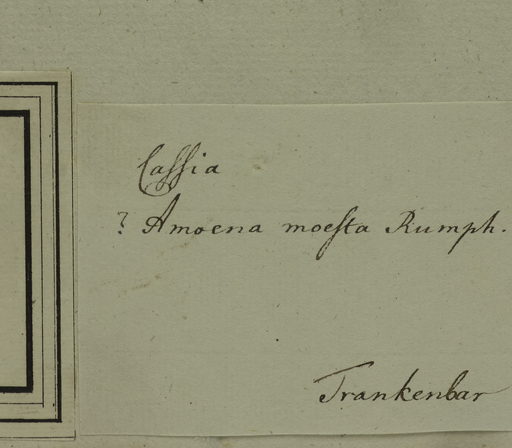 Caſſia
? Amoena moeſta Rumph.
Trankenbar